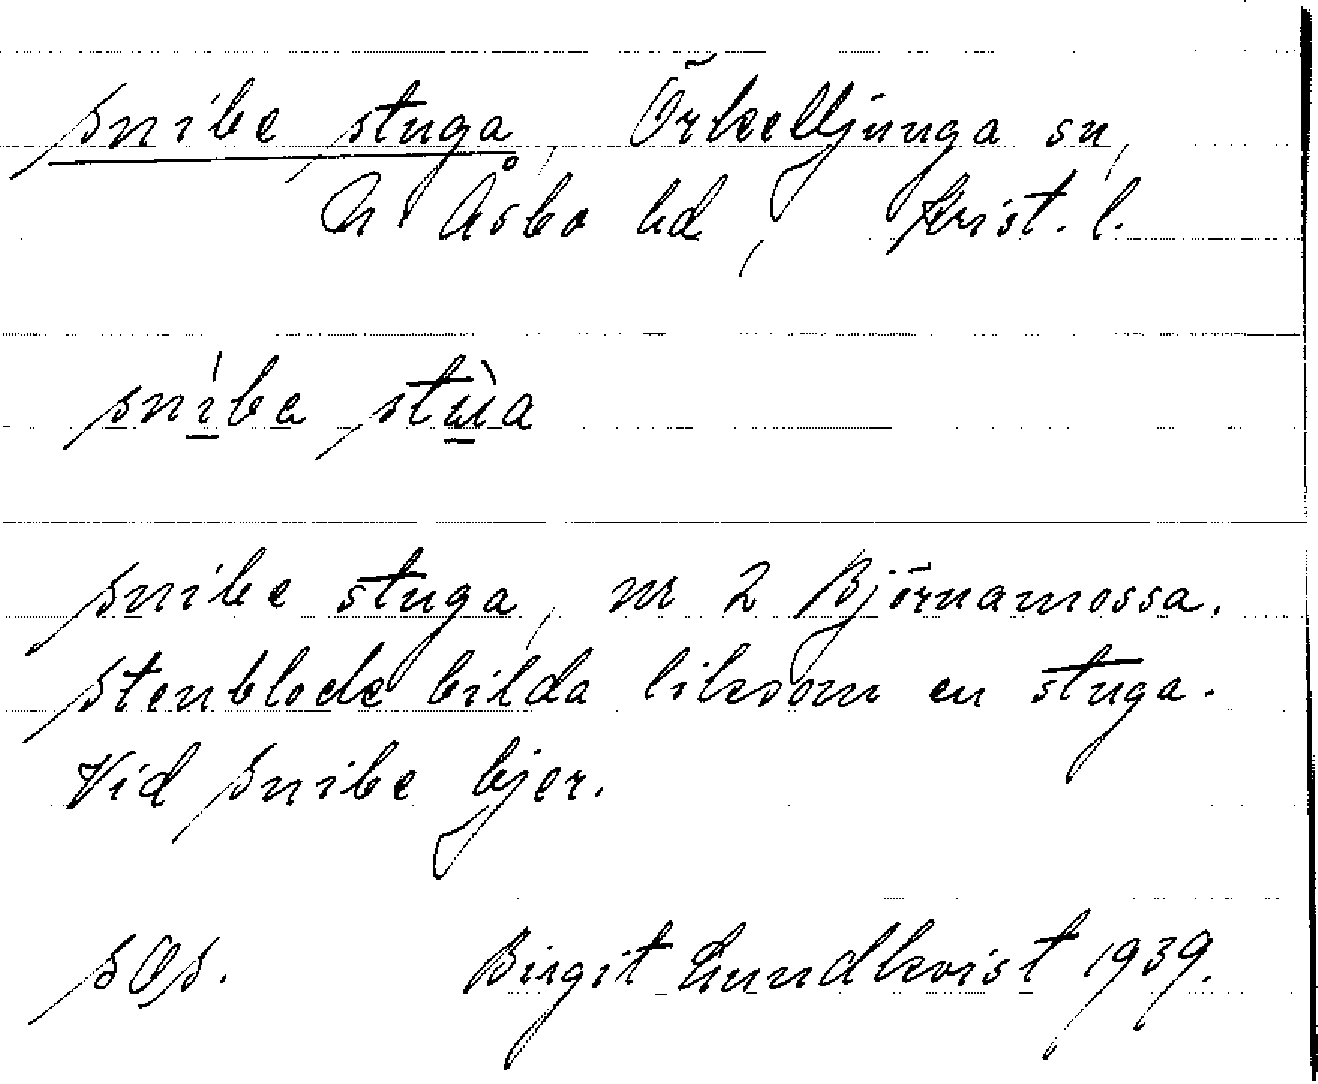 Snibe stuga, Örkelljunga sn,
N. Åsbo hd, Krist. l.
sníba stùa
Snibe stuga, nr 2 Björnamossa.
Stenblock bilda liksom en stuga.
Vid Snibe bjer.
SOS. Birgit Lundkvist 1939.